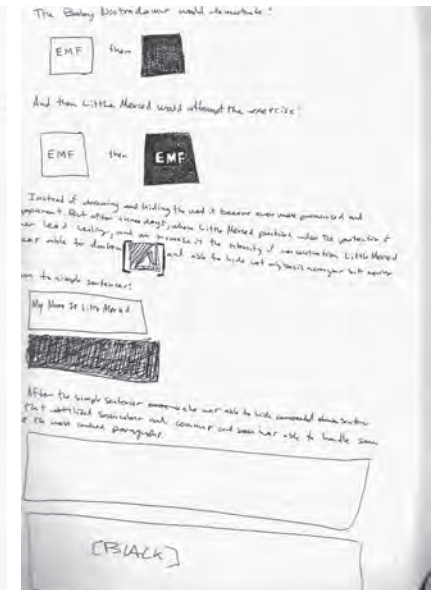 The Baby Nostradamus would demonstrate:
EMF then
And then Little Merced would attempt the exercise:
EMF then EMF
Instead of obscuring and hiding the word it became even more pronounced and
But after three days, where Little Merced practiced under the protection of
lead ceiling, and an increase in the intensity of concentration Little Merced
was able to darken and able to hide not only small
on to simple sentences:
My Name Is Little Merced
After the simple sentences she was able to hide compound
that utilized semicolons and commas and soon was able to handle some
of the most paragraphs.
[BLACK]